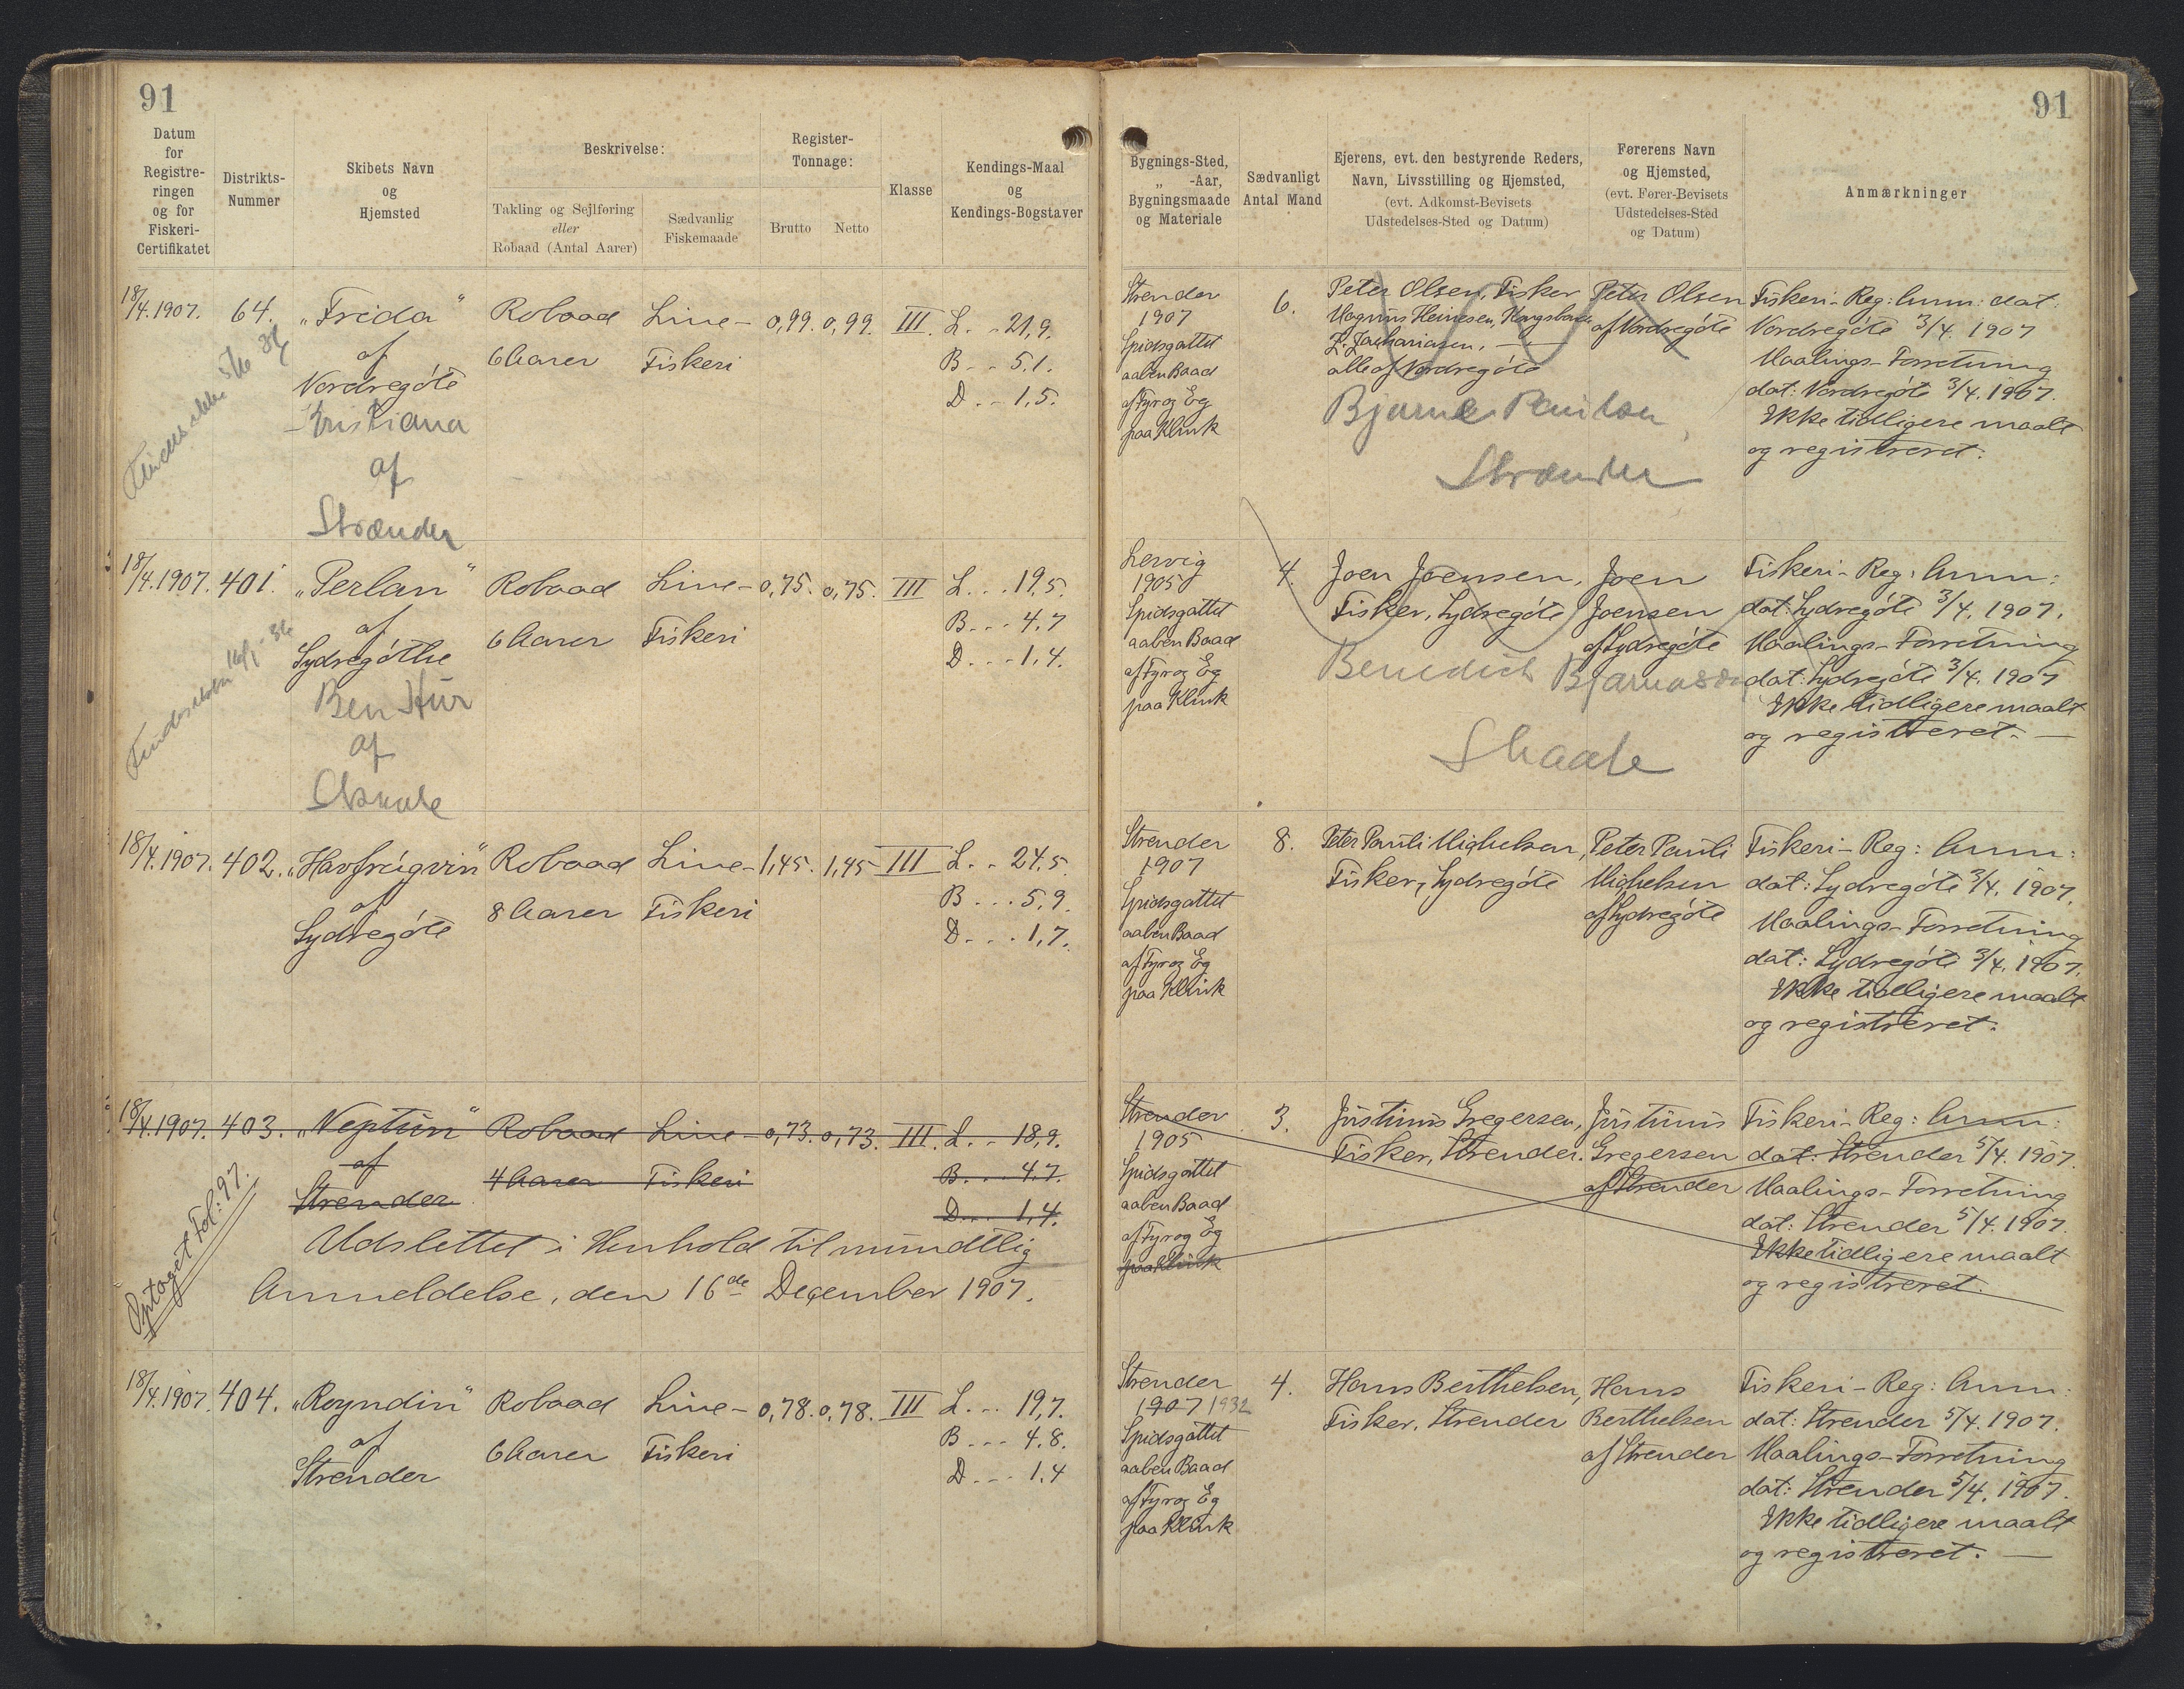 91
Datum
for
Registre-
ringen
og for
Fiskeri-
Certifikatet
Distrikts-
Nummer
Skibets Navn
og
Hjemsted
Beskrivelse:
Takling og Sejlføring
eller
Robaad (Antal Aarer)
Sædvanlig
Fiskemaade
Register-
Tonnage:
Brutto
Netto
Klasse
Kendings-Maal
og
Kendings-Bogstaver
18/4.1907. 64. „Frida" Robaad Line- 0,99. 0,99. III. L. . 21,9.
af 6 Aarer Fiskeri B . . 5.1.
Nordregóte D . . . 1,5.
Kristiana
af
Strænder
18/4.1907. 401. „Perlan" Robaad Line- 0,75. 0,75. III L. . . 19,5.
af 6 Aarer Fiskeri B . . . 4.7
Sydregóthe D . . . 1,4.
Ben Hur
af
Skaale
18/4.1907. 402. „Havfrúgvin" Robaad Line- 1,45. 1,45 III L. . 24,5.
af 8 Aarer Fiskeri B . . . 5,9.
Sydregóte D . . . 1,7.
18/4.1907. 403. „Neptún" Robaad Line- 0,73. 0,73. III. L. . 18,9.
af 4 Aarer Fiskeri B. . . 4.7.
Strender D . . . 1,4.
Optaget Fol: 97.
Udslettet i Henhold til mundtlig
Anmeldelse, den 16de December 1907.
18/4.1907. 404. „Royndin" Robaad Line- 0,78. 0,78. III L. . . 19,7.
af 6 Aarer Fiskeri B . . . 4.8.
Strender D . . . 1.4
91
Bygnings-Sted,
„ -Aar,
Bygningsmaade
og Materiale
Sædvanligt
Antal Mand
Ejerens, evt. den bestyrende Reders,
Navn, Livsstilling og Hjemsted,
(evt. Adkomst-Bevisets
Udstedelses-Sted og Datum)
Førerens Navn
og Hjemsted,
(evt. Fører-Bevisets
Udstedelses-Sted
og Datum)
Anmærkninger
Strender
1907
Spidsgattet
aaben Baad
af Fyr og Eg
paa Klink
6.
Peter Olsen, Fisker
Magnus Heinesen,
Z. Zachariasen, —
alle af Nordregóte
Bjarne Poulsen
Strænder
Peter Olsen
af Nordregóte
Fiskeri-Reg: Anm: dat:
Nordregóte 3/4. 1907
Maalings-Forretning
dat: Nordregóte 3/4. 1907.
Ikke tidligere maalt
og registreret.
Lervig
1905
Spidsgattet
aaben Baad
af Fyr og Eg
paa Klink
4.
Joen Joensen,
Fisker, Sydregóte
Benedict Bjarnason
Skaale
Joen
Joensen
af Sydregóte
Fiskeri-Reg: Anm:
dat: Sydregóte 3/4. 1907.
Maalings-Forretning
dat: Sydregóte 3/4. 1907
Ikke tidligere maalt
og registreret. —
Strender
1907
Spidsgattet
aaben Baad
af Fyr og Eg
paa Klink
8.
Peter Pauli Mighelsen,
Fisker, Sydregóte
Peter Pauli
Mighelsen
af Sydregóte
Fiskeri-Reg: Anm:
dat: Sydregóte 3/4. 1907.
Maalings-Forretning
dat: Sydregóte 3/4. 1907.
Ikke tidligere maalt
og registreret.
Strender
1905
Spidsgattet
aaben Baad
af Fyr og Eg
paa Klink
3.
Justinus Gregersen,
Fisker, Strender.
Justinus
Gregersen
af Strender
Fiskeri-Reg: Anm:
dat: Strender 5/4. 1907.
Maalings-Forretning
dat: Strender 5/4. 1907.
Ikke tidligere maalt
og registreret.
Strender
1907 1932
Spidsgattet
aaben Baad
af Fyr og Eg
paa Klink
4.
Hans Berthelsen,
Fisker, Strender
Hans
Berthelsen
af Strender
Fiskeri-Reg: Anm:
dat: Strender 5/4. 1907.
Maalings-Forretning
dat: Strender 5/4. 1907.
Ikke tidligere maalt
og registreret. —